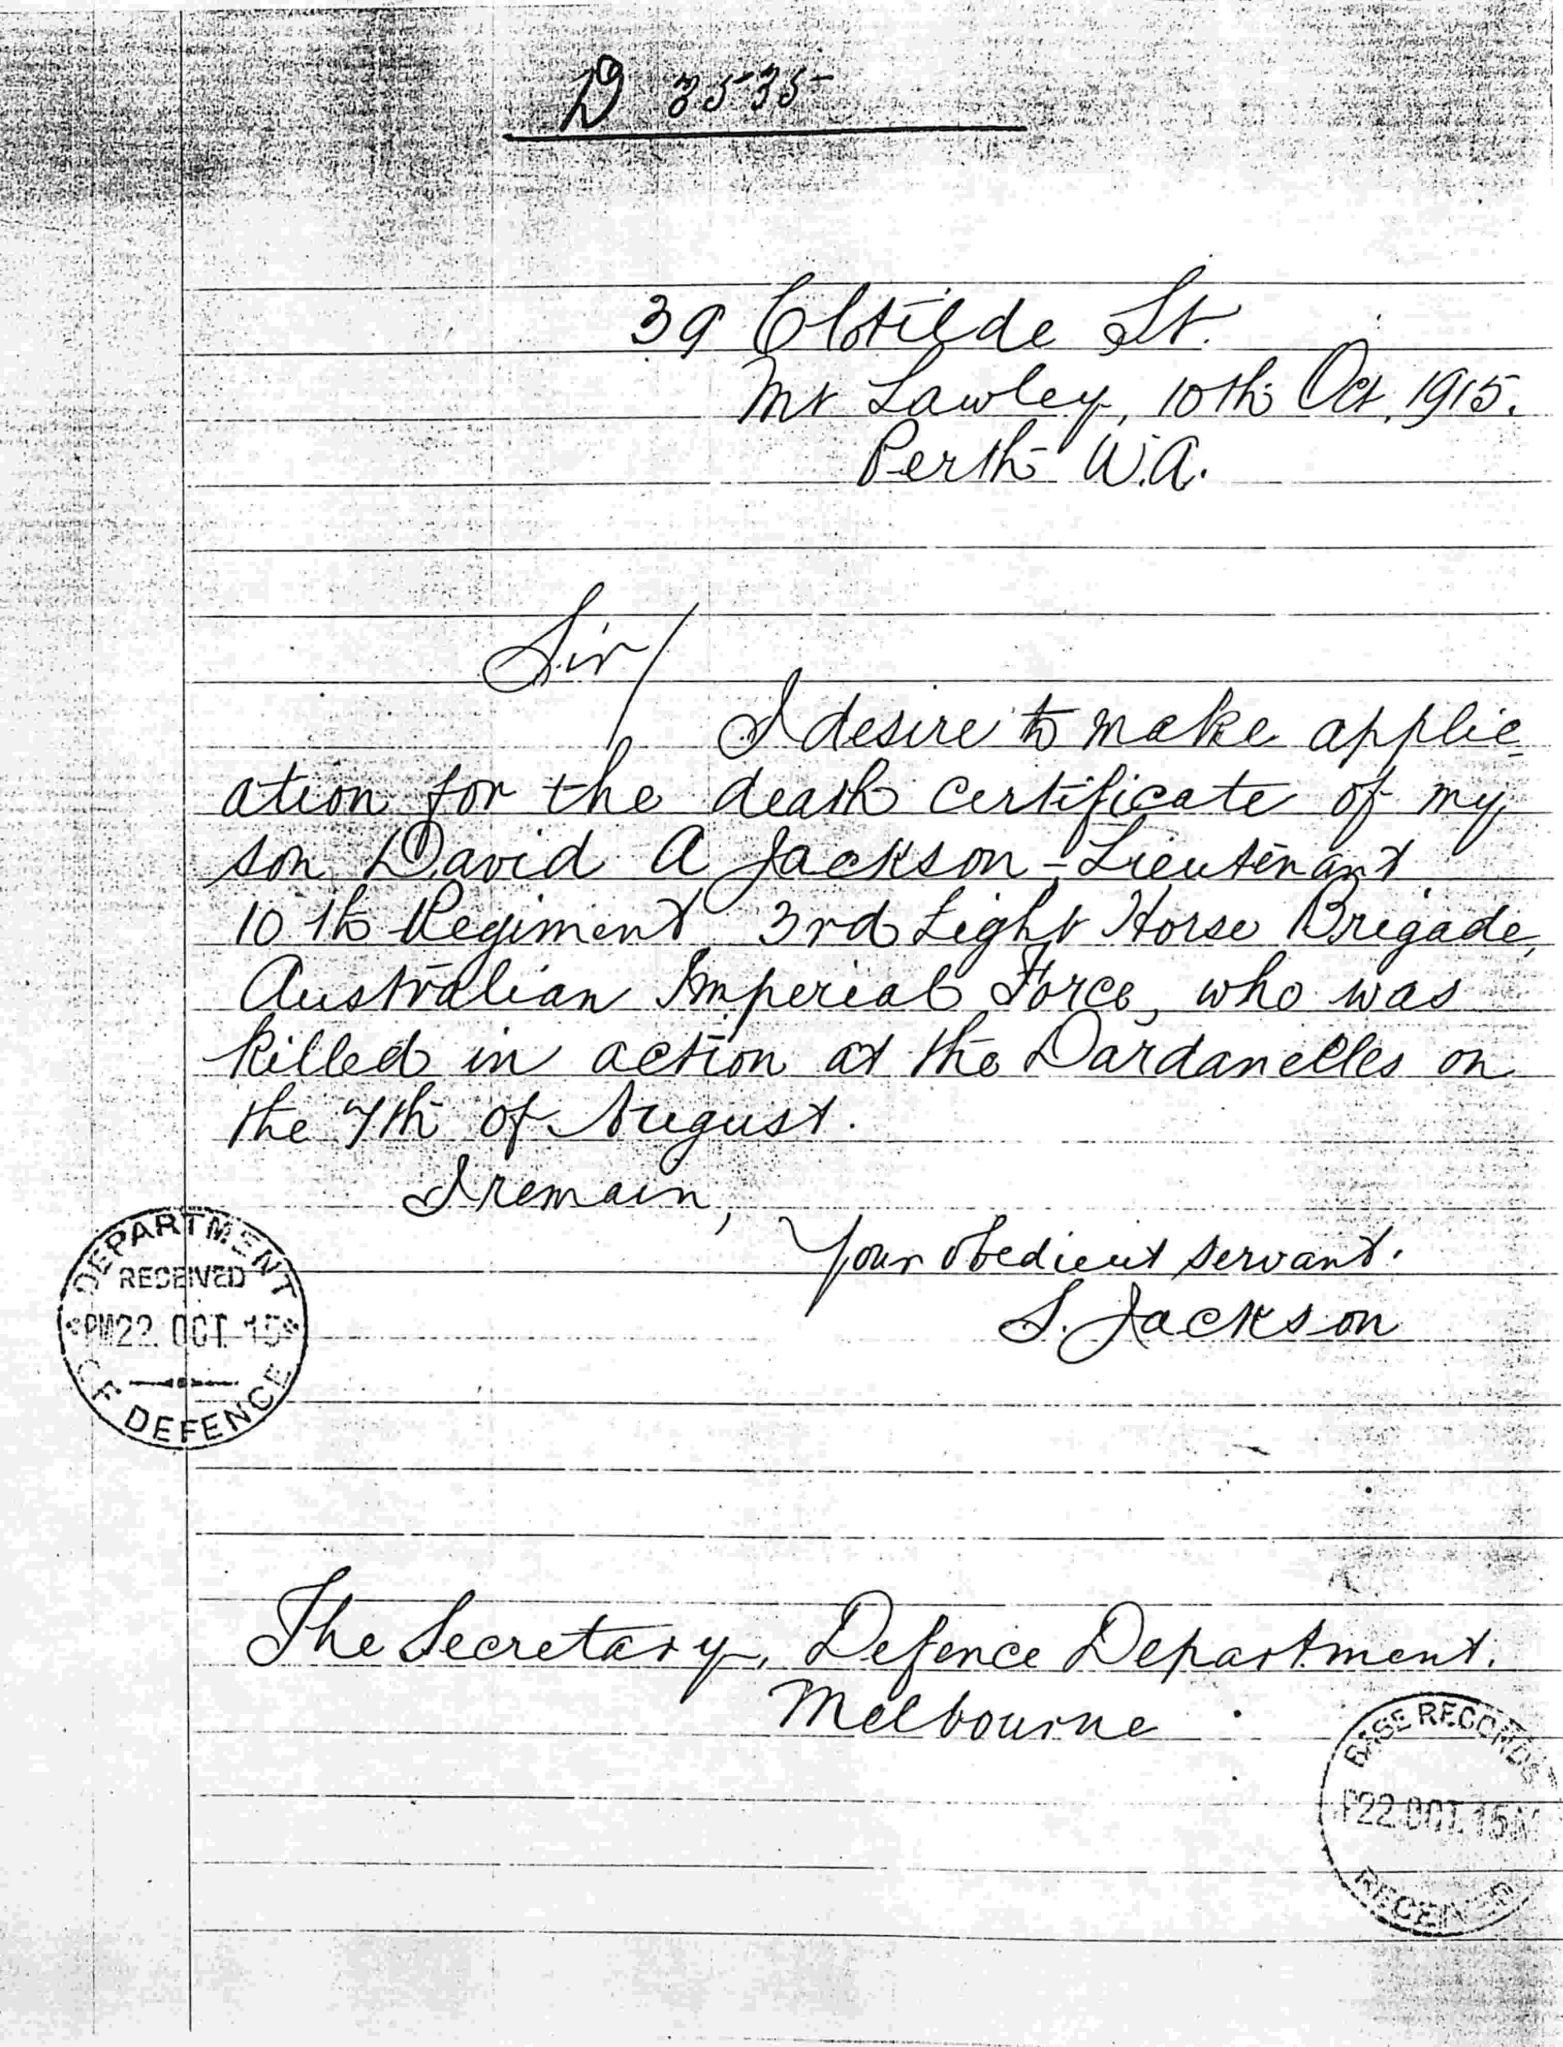 D 3535
39 Clotilde St.
Mt Lawley, 10th Oct, 1915.
Perth W.A.
Sir/
I desire to make applic-
ation for the death certificate of my
son David A Jackson - Lieutenant
10th Regiment, 3rd Light Horse Brigade,
Australian Imperial Force, who was
killed in action at the Dardanelles on
the 7th of August.
I remain,
Your obedient servant.
S. Jackson
DEPARTMENT
RECEIVED
PM 22. OCT. 15
OF DEFENCE
The Secretary, Defence Department.
Melbourne
BASE RECORDS
P 22. OCT. 15 M
RECEIVED